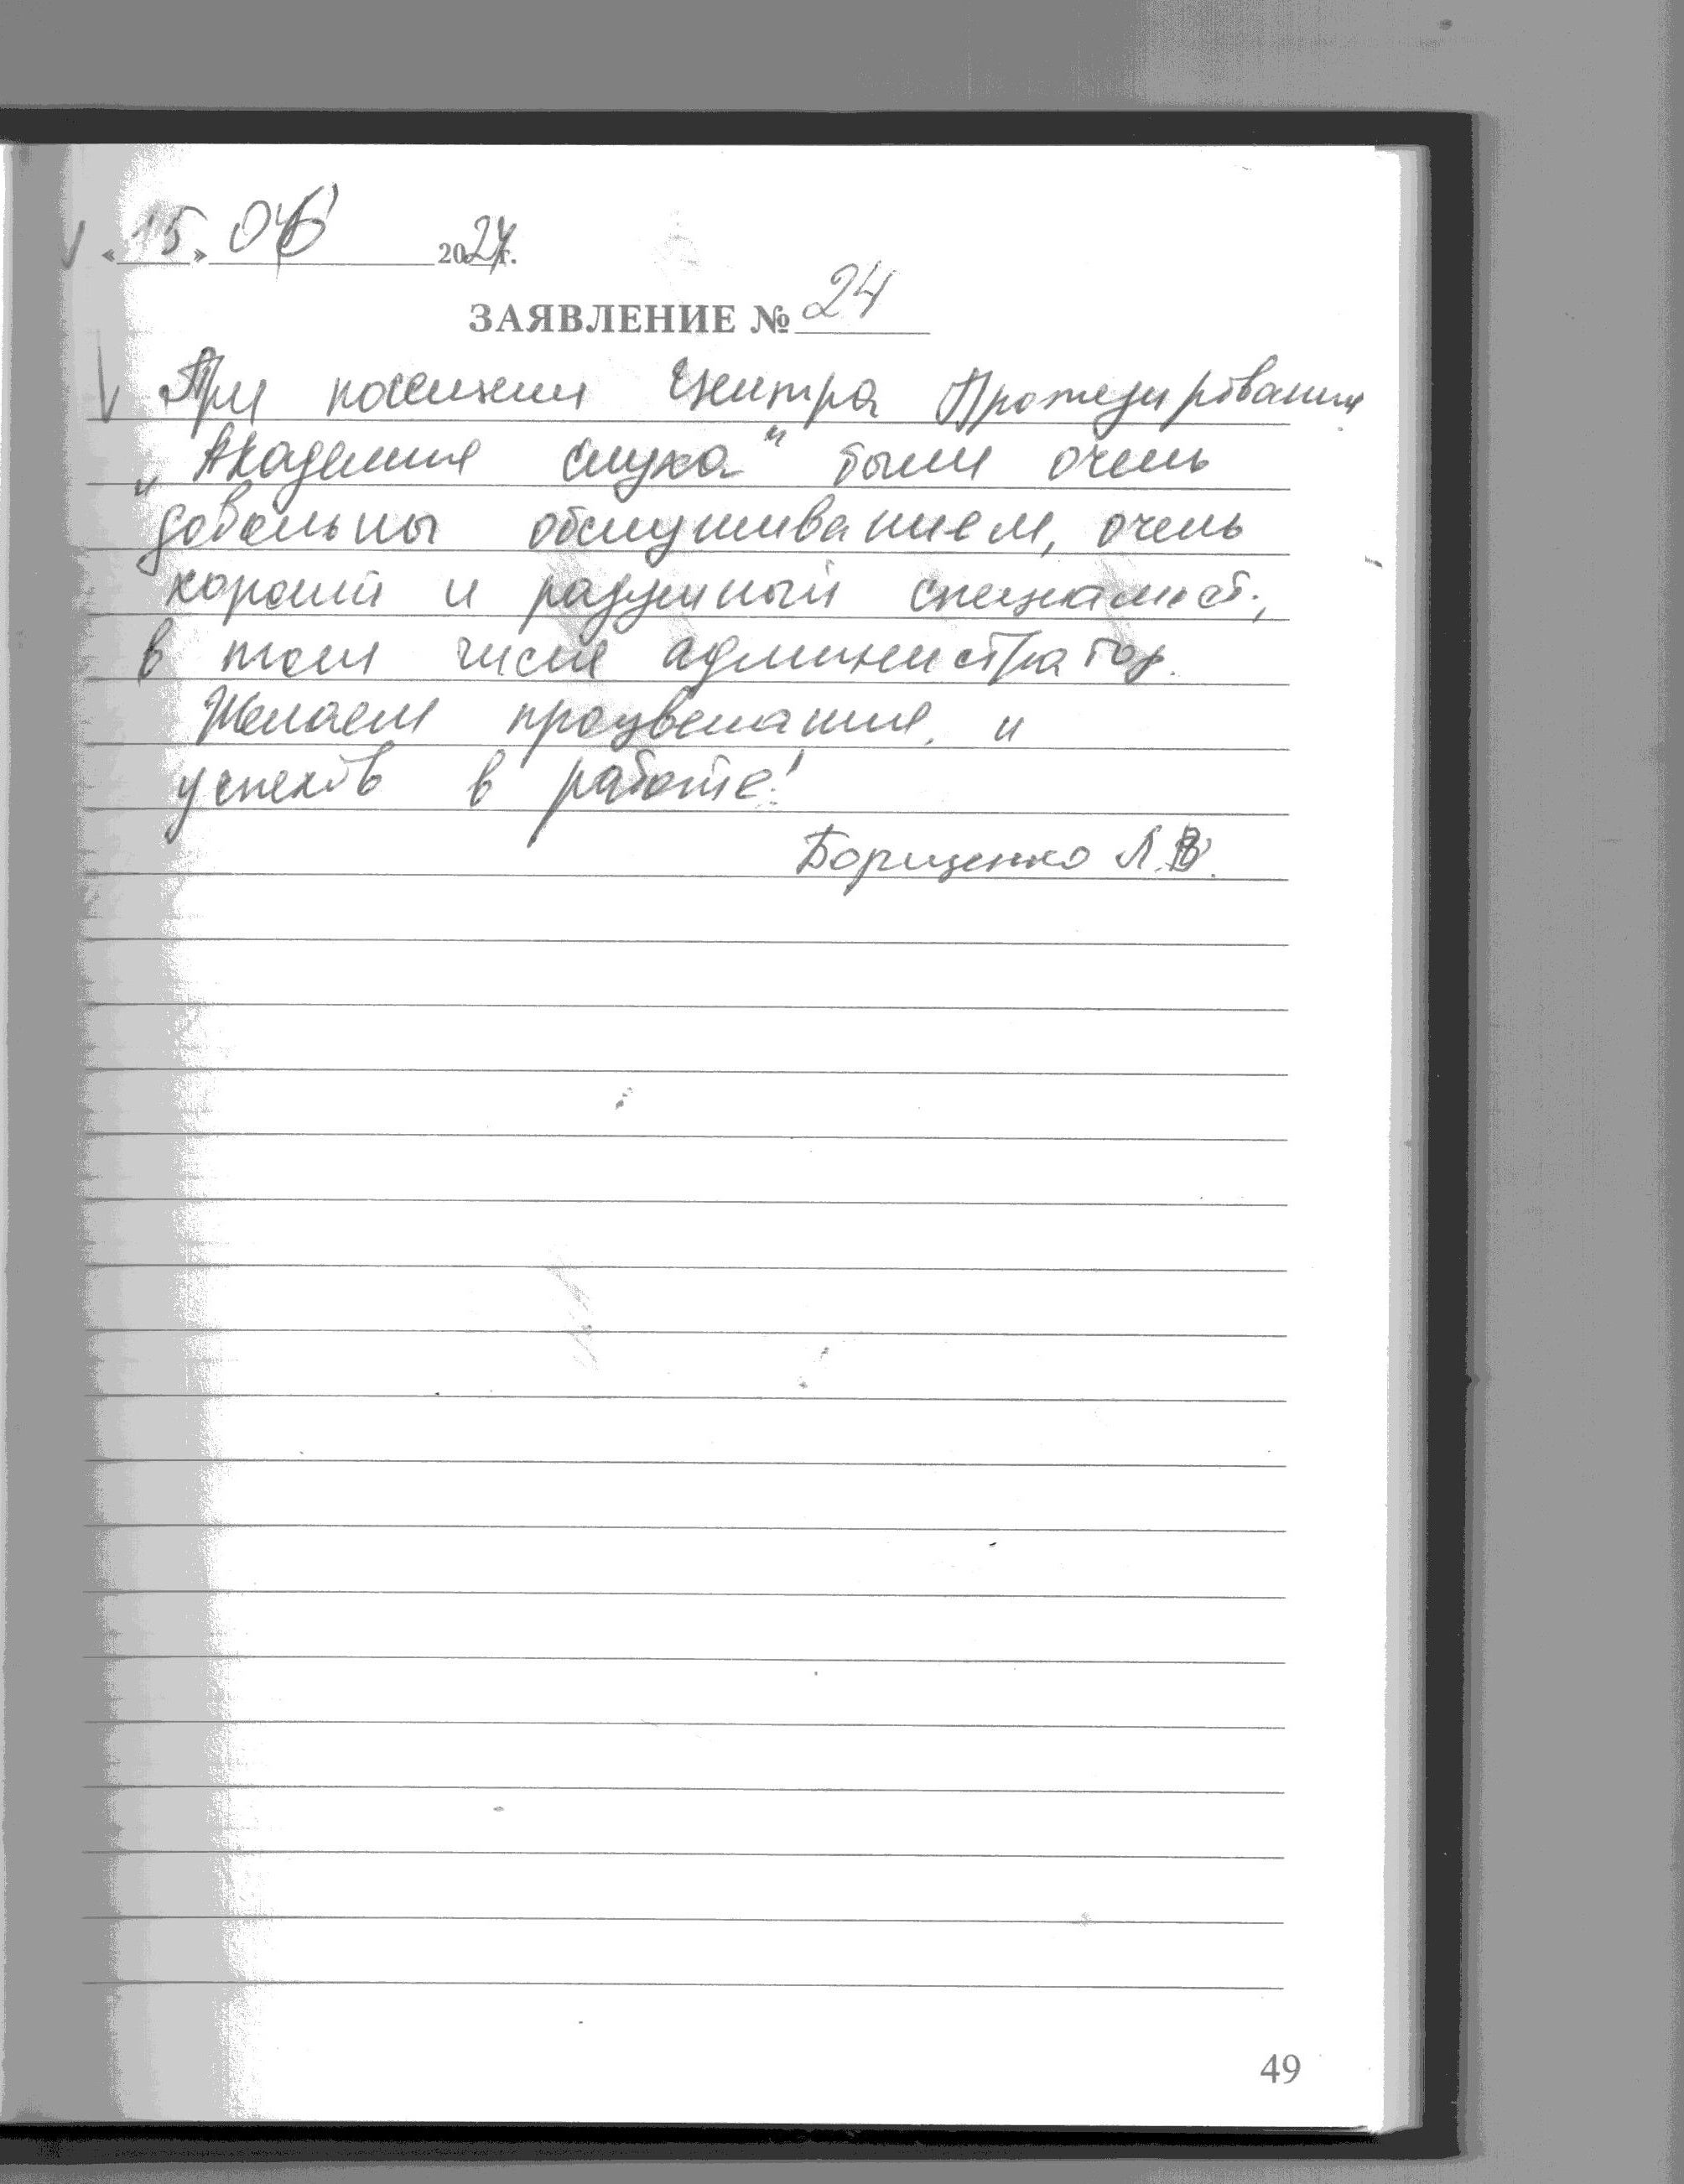 «15» 06 2024г.
ЗАЯВЛЕНИЕ № 24
При посещении Центра Протезирования
„Академия слуха" были очень
довольны обслуживанием, очень
хороший и радушный специалист,
в том числе администратор.
Желаем процветания, и
успехов в работе!
Борщенко Л.В.
49